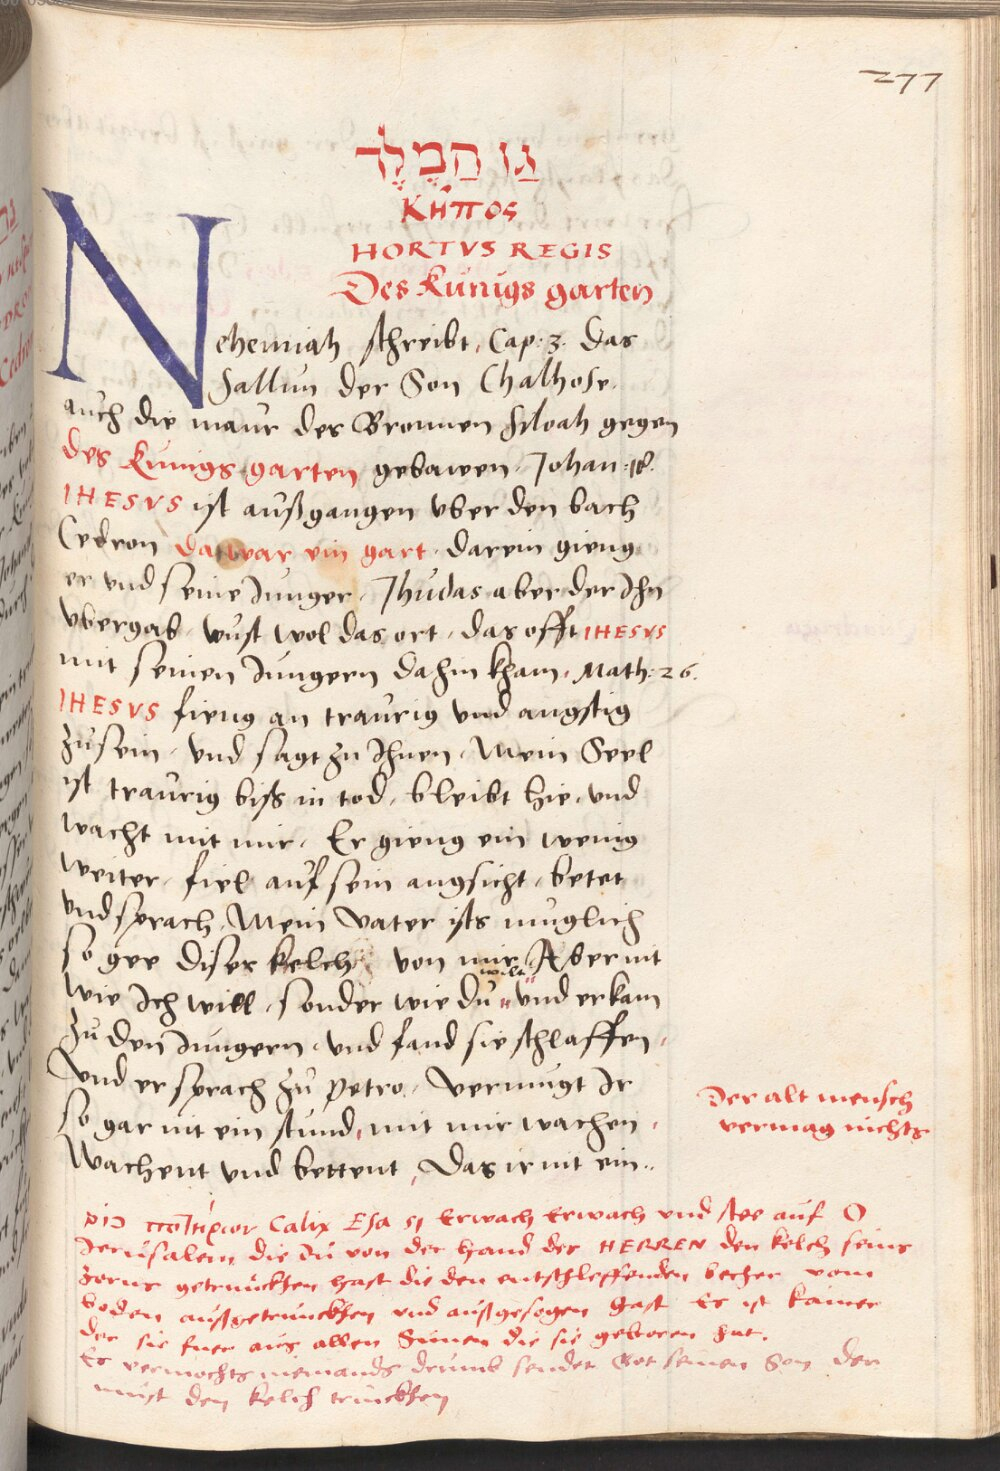 277
גַּן הַמֶּלֶךְ
Κήπος
HORTVS REGIS
Des Künigs garten
Nehemiah schreibt, Cap. 3. Das
Sallun der Son Chalhose.
auch die maur des Bronnen Siloah gegen
des Künigs garten gebawen. Johan: 18.
IHESVS ist außgangen vber den bach
Cedron da war ein gart. darein gieng
er vnd seine Junger. Jhudas aber der Jhn
vbergab. wust wol das ort. das offt IHESVS
mit seinen Jungern dahin kham. Math: 26.
IHESVS fieng an traurig vnd angstig
zu sein. vnd sagt zu Jhnen. Mein Seel
ist traurig biß in tod. bleibt hie. vnd
wacht mit mir. Er gieng ein wenig
weiter. fiel auf sein angsicht. betet
vnd sprach. Mein vater ists muglich
so gee diser kelch von mir. Aber nit
wie Jch will. sonder wie du " vnd er kam
will
zu den Jungern. vnd fand sie schlaffen.
vnd er sprach zu petro. vermugt Jr
so gar nit ein stund, mit mir wachen.
Wachent vnd bettent, Das ir nit ein..
Der alt mensch
vermag nichts
כוס ποτήριον Calix Esa 51 Erwach Erwach vnd stee auf O
Jerusalem die du von der hand des HERREN den kelch seins
zorns getrunckhen hast die den entschleffenden becher vom
boden außgetrunckhen vnd außgesogen hast Es ist kainer
der sie fuer aus allen Sünen die sie geboren hat.
Er vermochts niemands drumb sendet Got seinen Son der
must den kelch trinckhen